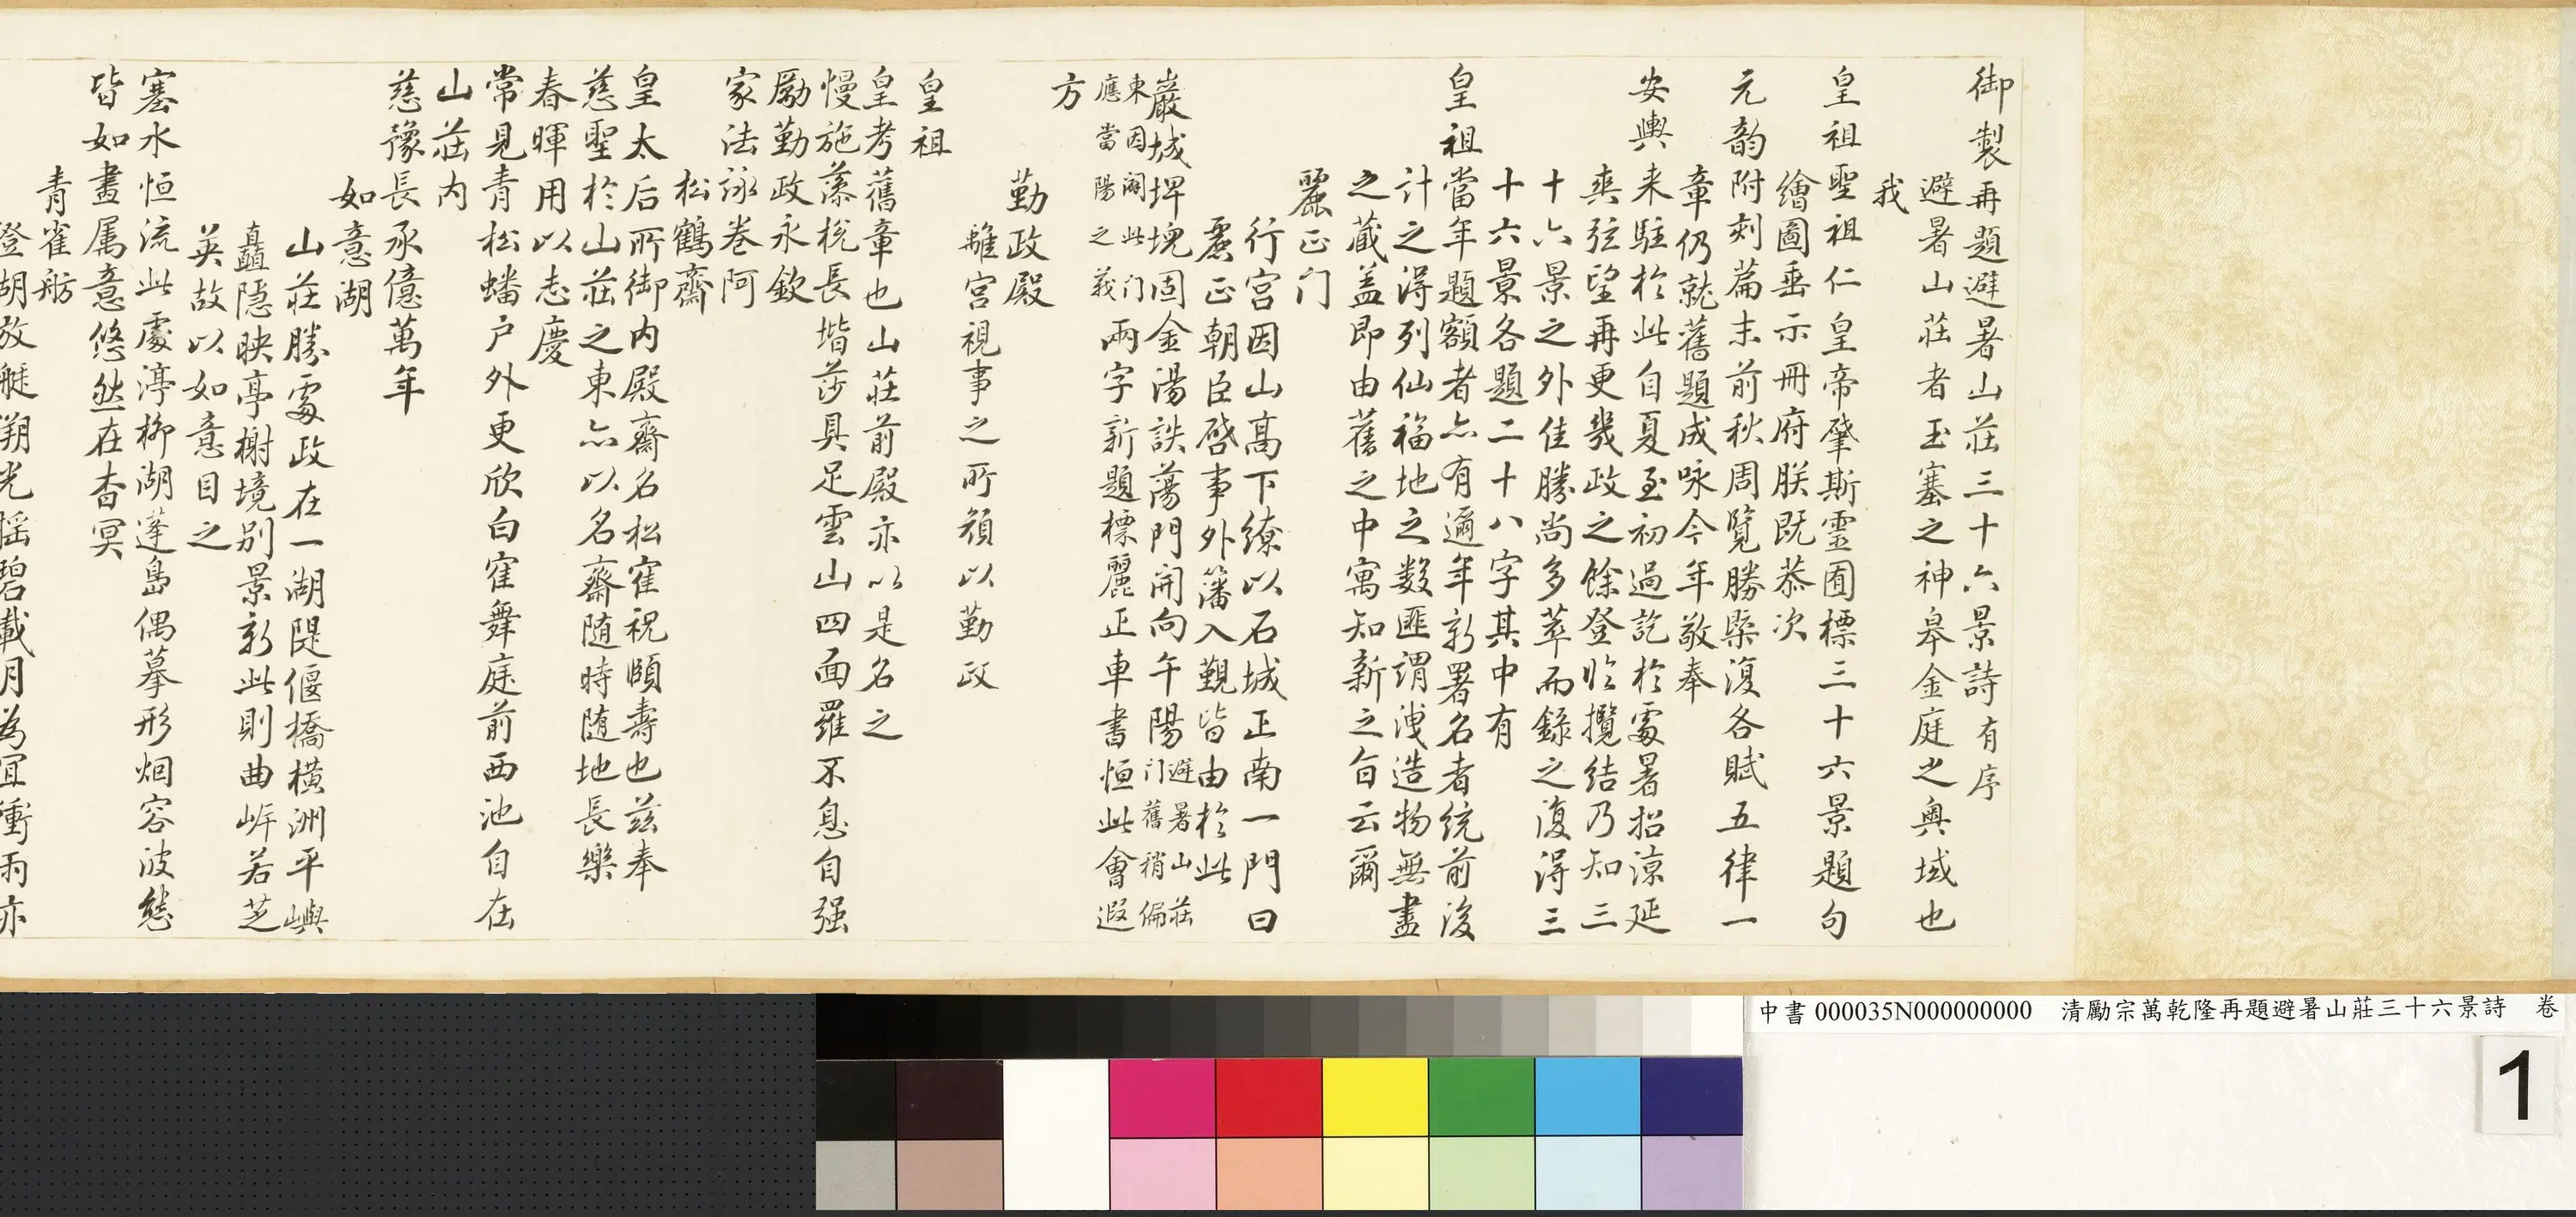 御製再題避暑山莊三十六景詩有序
避暑山莊者玉塞之神皋金庭之奧域也
我
皇祖聖祖仁皇帝肇斯靈囿標三十六景題句
繪圖垂示冊府朕既恭次
元韵附刻篇末前秋周覽勝槩復各賦五律一
章仍就舊題成咏今年敬奉
安輿來駐於此自夏至初過訖於處暑招涼延
爽弦望再更幾政之餘登临攬結乃知三
十六景之外佳勝尚多萃而錄之復得三
十六景各題二十八字其中有
皇祖當年題額者亦有邇年新署名者統前後
計之得列仙福地之数匪謂洩造物無盡
之藏盖即由舊之中寓知新之旨云爾
麗正门
行宮因山高下繚以石城正南一門曰
麗正朝臣啓事外藩入觐皆由於此
巖城埤堄固金湯詄蕩門開向午陽避暑山莊门舊稍偏
東因闢此门應當陽之義兩字新題標麗正車書恒此會遐
方
勤政殿
離宮視事之所顏以勤政
皇祖
皇考舊章也山莊前殿亦以是名之
慢施藻棁長堦莎具足雲山四面羅不息自强
勵勤政永欽
家法詠卷阿
松鶴齋
皇太后所御内殿齋名松寉祝頤壽也兹奉
慈聖於山莊之東亦以名齋随時随地長樂
春暉用以志慶
常見青松蟠户外更欣白寉舞庭前西池自在
山莊内
慈豫長承億萬年
如意湖
山莊勝處政在一湖隄偃橋橫洲平嶼
矗隱映亭榭境别景新此則曲岸若芝
英故以如意目之
塞水恒流此處渟柳湖蓬島偶摹形烟容波態
皆如畫属意悠然在杳冥
青雀舫
澄湖放艇溯光摇碧載月為宜衝雨亦
中書000035N000000000 清勵宗萬乾隆再題避暑山莊三十六景詩 卷
1